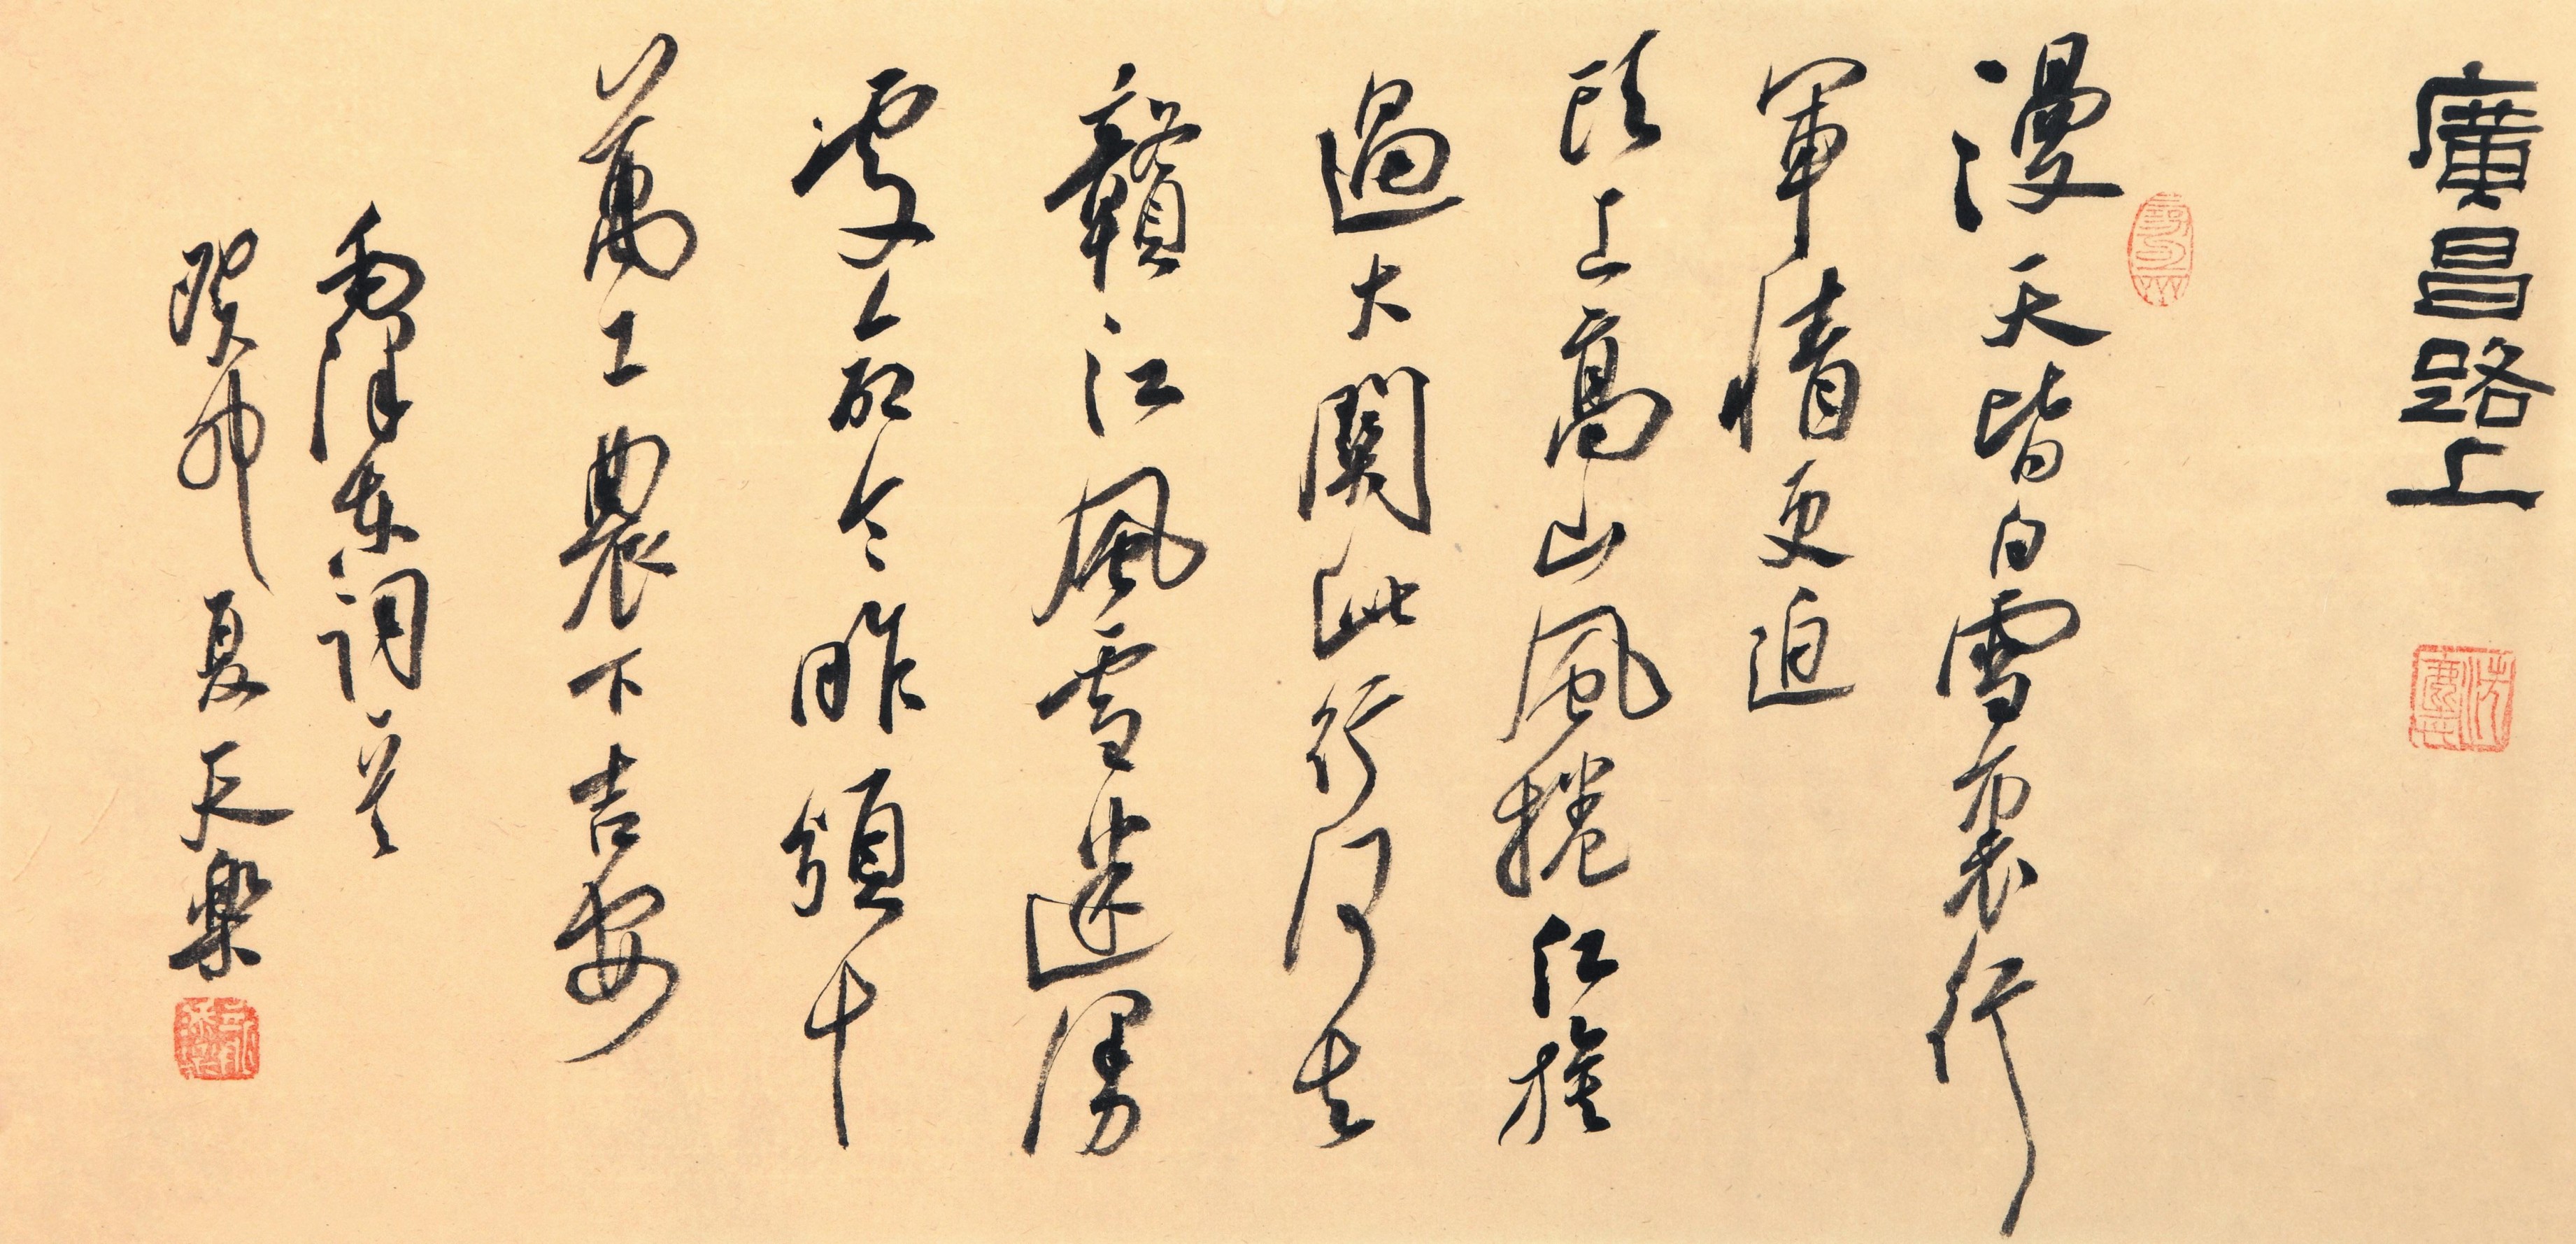 廣昌路上
漫天皆白雪裏行
軍情更迫
頭上高山風捲紅旗
過大關此行何去
贛江風雪迷漫
處命令昨頒十
萬工農下吉安
毛澤東詞一首
癸卯夏天樂